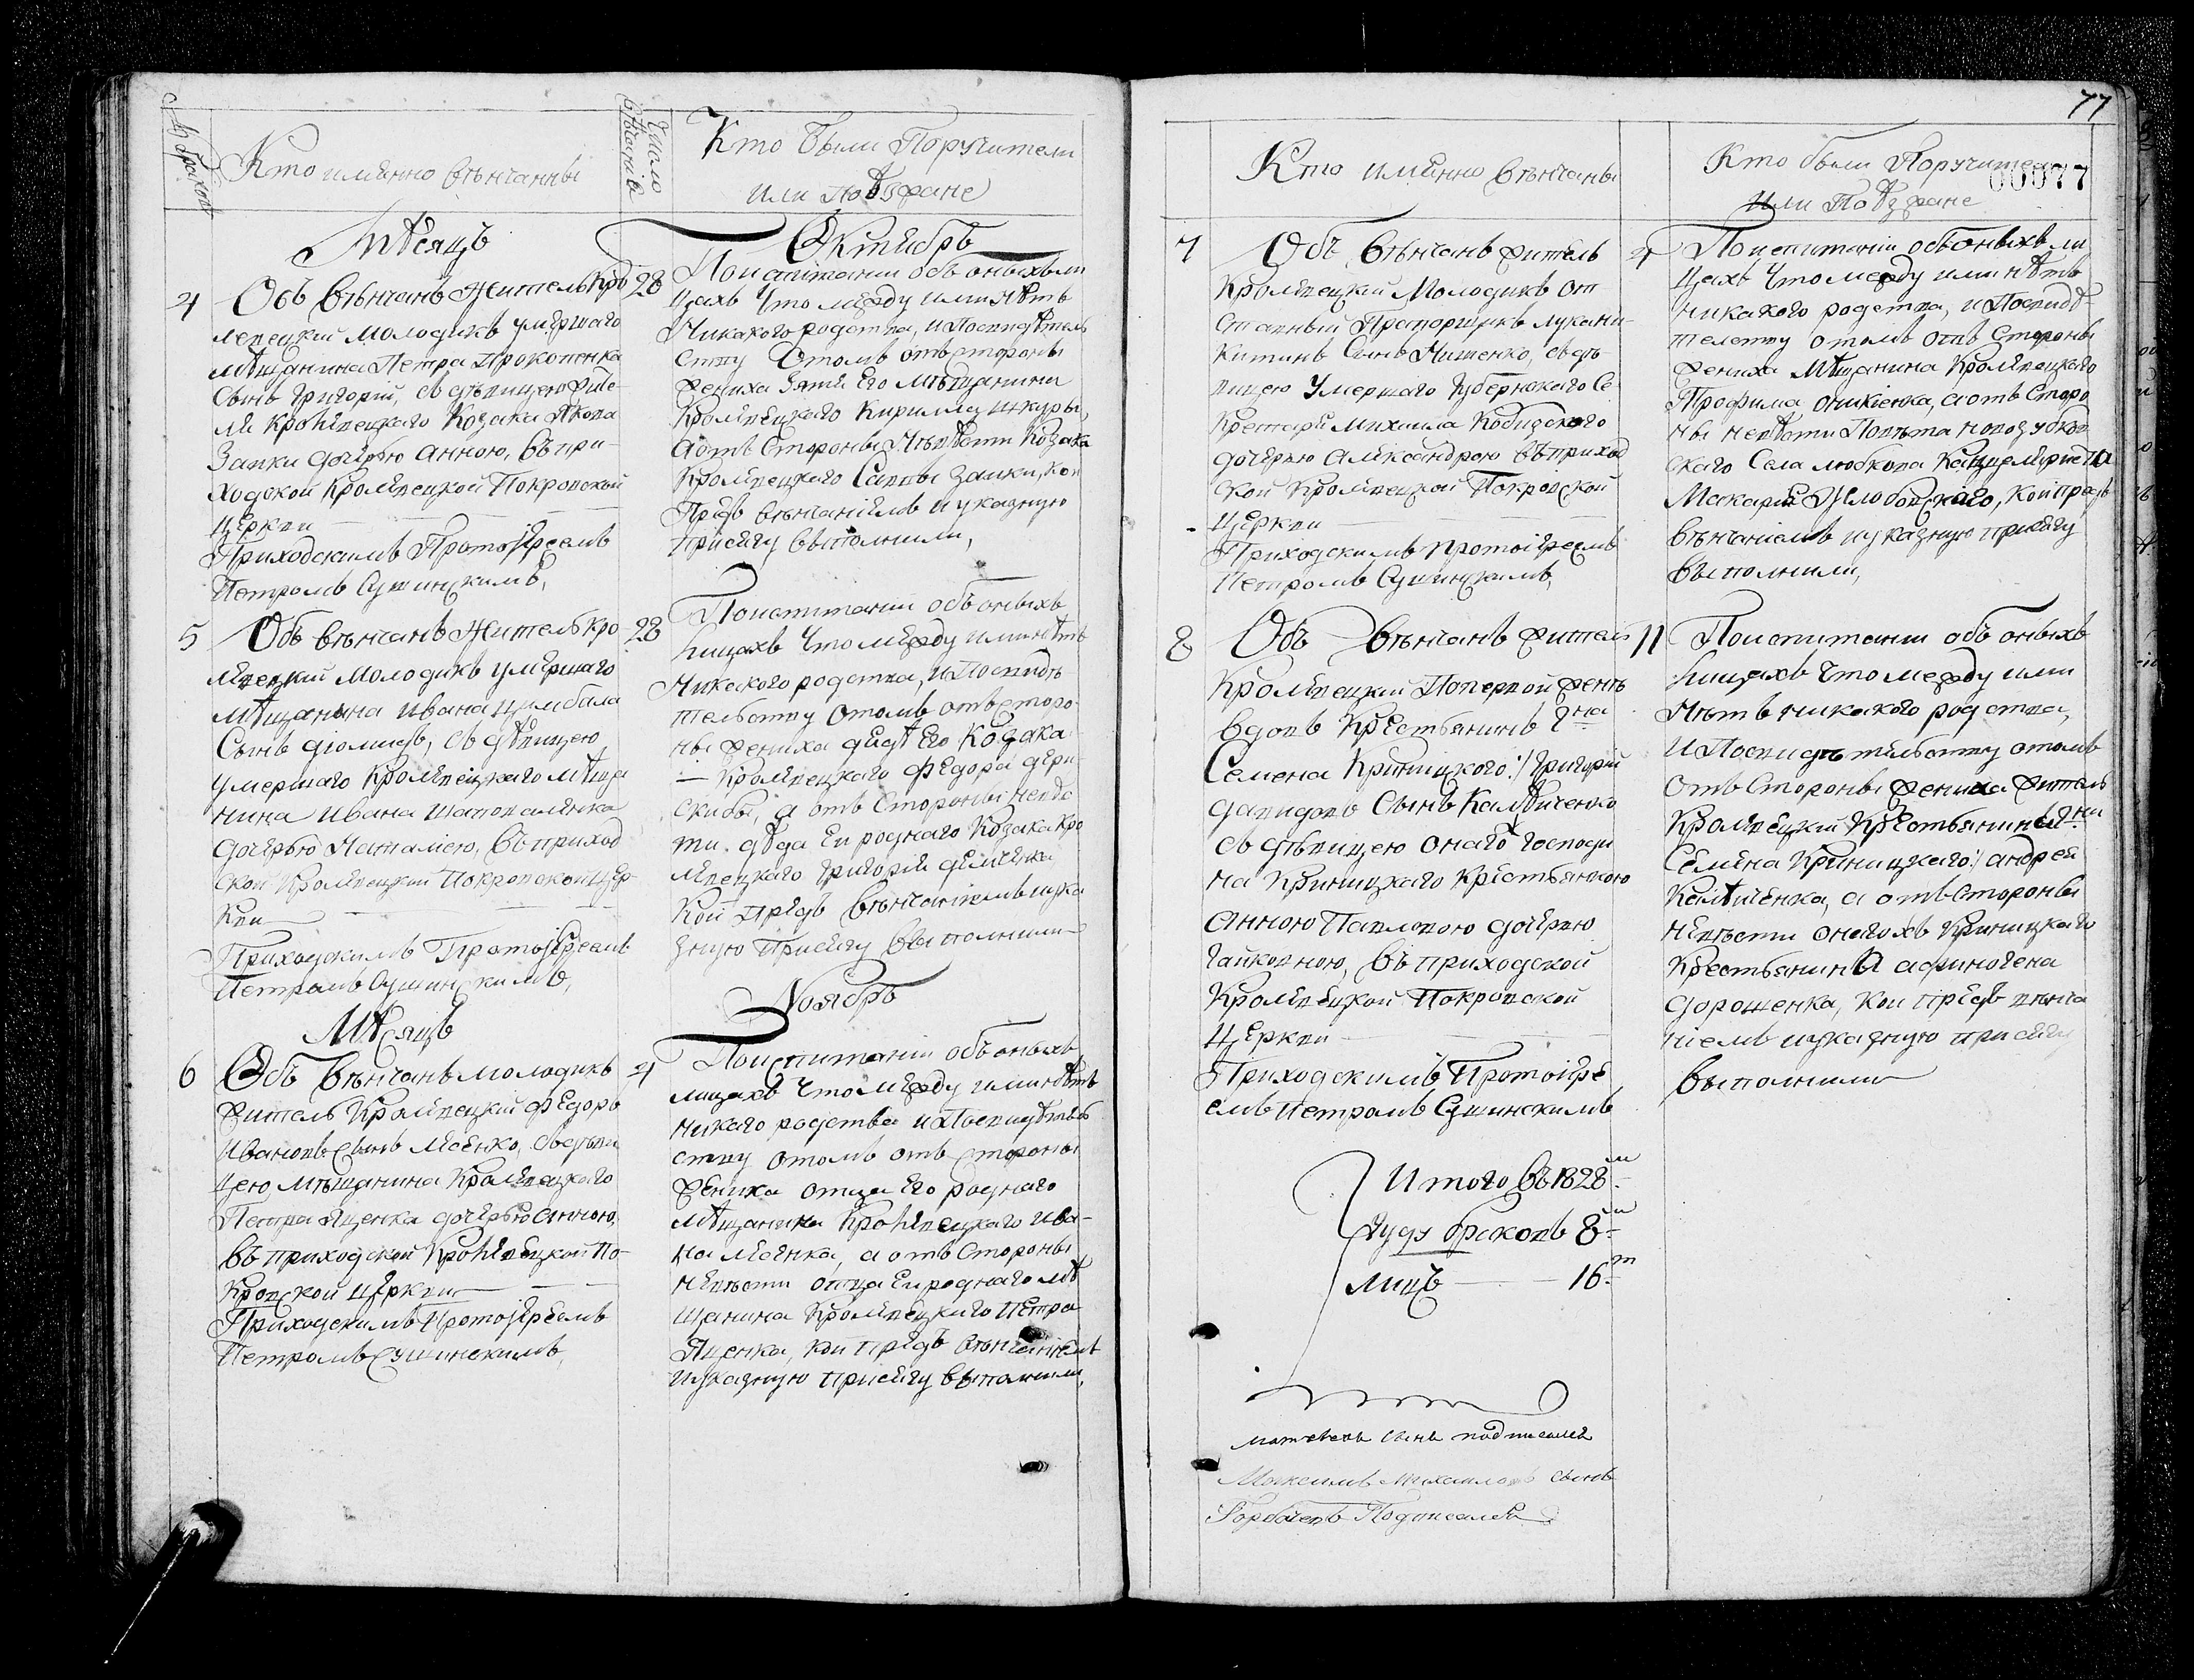 77
00077
№ браковъ
Кто имянно вѣнчанны
Число вѣнчанія
Кто были Поручители
или Поѣзжане
Мѣсяцъ
Октябрь
4
Обвѣнчанъ Житель Кро
левецкий молодикъ умершаго
мѣщанина Петра Прокопенка
Сынъ Григорій, съ дѣвицею жите-
ля Кролевецкого Козака Якова
Заики дочерью Анною, въ при-
ходской Кролевецкой Покровской
Церкви
Приходскимъ Протоіереемъ
Петромъ Сушинскимъ,
28
По испитании объ оныхъ ли
цахъ Что между ими нѣтъ
Никакого родства, и Посвидѣтель
ству о томъ отъ стороны
жениха Зятя Его мѣщанина
Кролевецкого Кирилла Шкуры,
а отъ Стороны Невѣсти Козака
Кролевецкого Саввы Заики, кои
Предъ вѣнчаніемъ и указную
присягу выполнили,
5
Обвѣнчанъ Житель Кро
левецкий молодикъ умершаго
мѣщанина Ивана Цимбала
Сынъ Діомидъ, съ дѣвицею
умершаго Кролевецкаго мѣща
нина Ивана Шаповаленка
дочерью Наталиею, въ приход
ской Кролевецкой Покровской Цер-
кви
Приходскимъ Протоіереемъ
Петромъ Сушинскимъ,
28
По испитании объ оныхъ
лицахъ Что между ими нѣтъ
Никакого родства, и Посвидѣ
тельству о томъ отъ сторо-
ны жениха дядѣ Его Козака
Кролевецкаго Федора Дери-
скибы, а отъ Стороны невѣ
сти дѣда Ея роднаго Козака Кро
левецкаго Григорія Деменка
Кои предъ Вѣнчаніемъ и ука
зную Присягу выполнили
Мѣсяцъ
Ноябрь
6
Обвѣнчанъ молодикъ
житель Кролевецкий Федоръ
Ивановъ Сынъ Лѣсенко, съ дѣви
цею, мѣщанина Кролевецкаго
Петра Яценка дочерью Анною,
въ приходской Кролевецкой По-
кровской Церкви
Приходскимъ Протоіереемъ
Петромъ Сушинскимъ,
4
По испитаніи объ оныхъ
лицахъ Что между ими нѣтъ
никаго родства и Посвидѣтель
ству о томъ отъ стороны
жениха отца Его роднаго
мѣщанина Кролевецкаго Ива-
на Лѣсенка, а отъ Стороны
невѣсти отца Ея роднаго мѣ
щанина Кролевецкаго Петра
Яценка, кои предъ вѣнчаніемъ
и указную присягу выполнили,
Кто имянно вѣнчаны
Кто были Поручите
или Поѣзжане
7
Обвѣнчанъ житель
Кролевецкий Молодикъ от
ставный Прапорщикъ Лука Ни-
китинъ Сынъ Мишенко, съ дѣ
вицею умершаго Губернскаго Се
кретаря Михаила Кобизского
дочерью Александрою въ приход
ской Кролевецкой Покровской
Церкви
Приходскимъ Протоіереемъ
Петромъ Сушинскимъ,
4
По испитаніи объ оныхъ ли
цахъ Что между ими нѣтъ
никакого родства, и Посвидѣ-
телству о томъ отъ Стороны
жениха Мѣщанина Кролевецкаго
Трофима Оникіенка, а отъ Сторо
ны невѣсти Повѣта новозубков
скаго Села Любкова Канцеляриста
Макария Жлобоцкаго, кои предъ
вѣнчаніемъ и указную присягу
выполнили,
8
Обвѣнчанъ житель
Кролевецкий По первой женѣ
вдовъ Крестьянинъ Гна
Семена Криницкого:/ Григорій
Давидовъ Сынъ Калѣниченко
съ дѣвицею онаго Господи
на Криницкаго Крестьянкою
Анною Павловою дочерью
Гайковною, въ приходской
Кролевецкой Покровской
Церкви
Приходскимъ Протоіере
емъ Петромъ Сушинскимъ
11
По испитании объ оныхъ
лицахъ Что между ими
нѣтъ никакого родства,
И Посвидѣтельству о томъ
отъ Стороны жениха житель
Кролевецкий Крестьянинъ Гна
Семена Криницкаго:/ Андрей
Калѣниченка, а отъ Стороны
невѣсти онагожъ Криницкаго
Крестьянина Афиногена
Дорошенка, кои предъ вѣнча
ніемъ и указную присягу
выполнили
Итого въ 1828м
Году браковъ 8м
лицъ 16т
сынъ подписался
Максимъ Михаиловъ сынъ
Горбачевъ Подписался